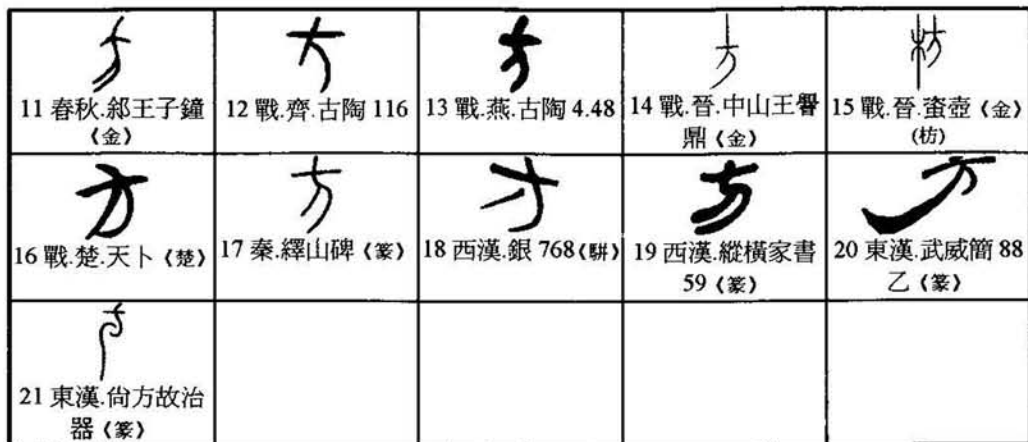 11 春秋.䣄王子鐘
《金》
12 戰.齊.古陶 116
13 戰.燕.古陶 4.48
14 戰.晉.中山王
鼎《金》
15 戰.晉.壺《金》
(枋)
16 戰.楚.天卜《楚》
17 秦.繹山碑《篆》
18 西漢.銀 768《駢》
19 西漢.縱橫家書
59《篆》
20 東漢.武威簡 88
乙《篆》
21 東漢.尙方故治
器《篆》